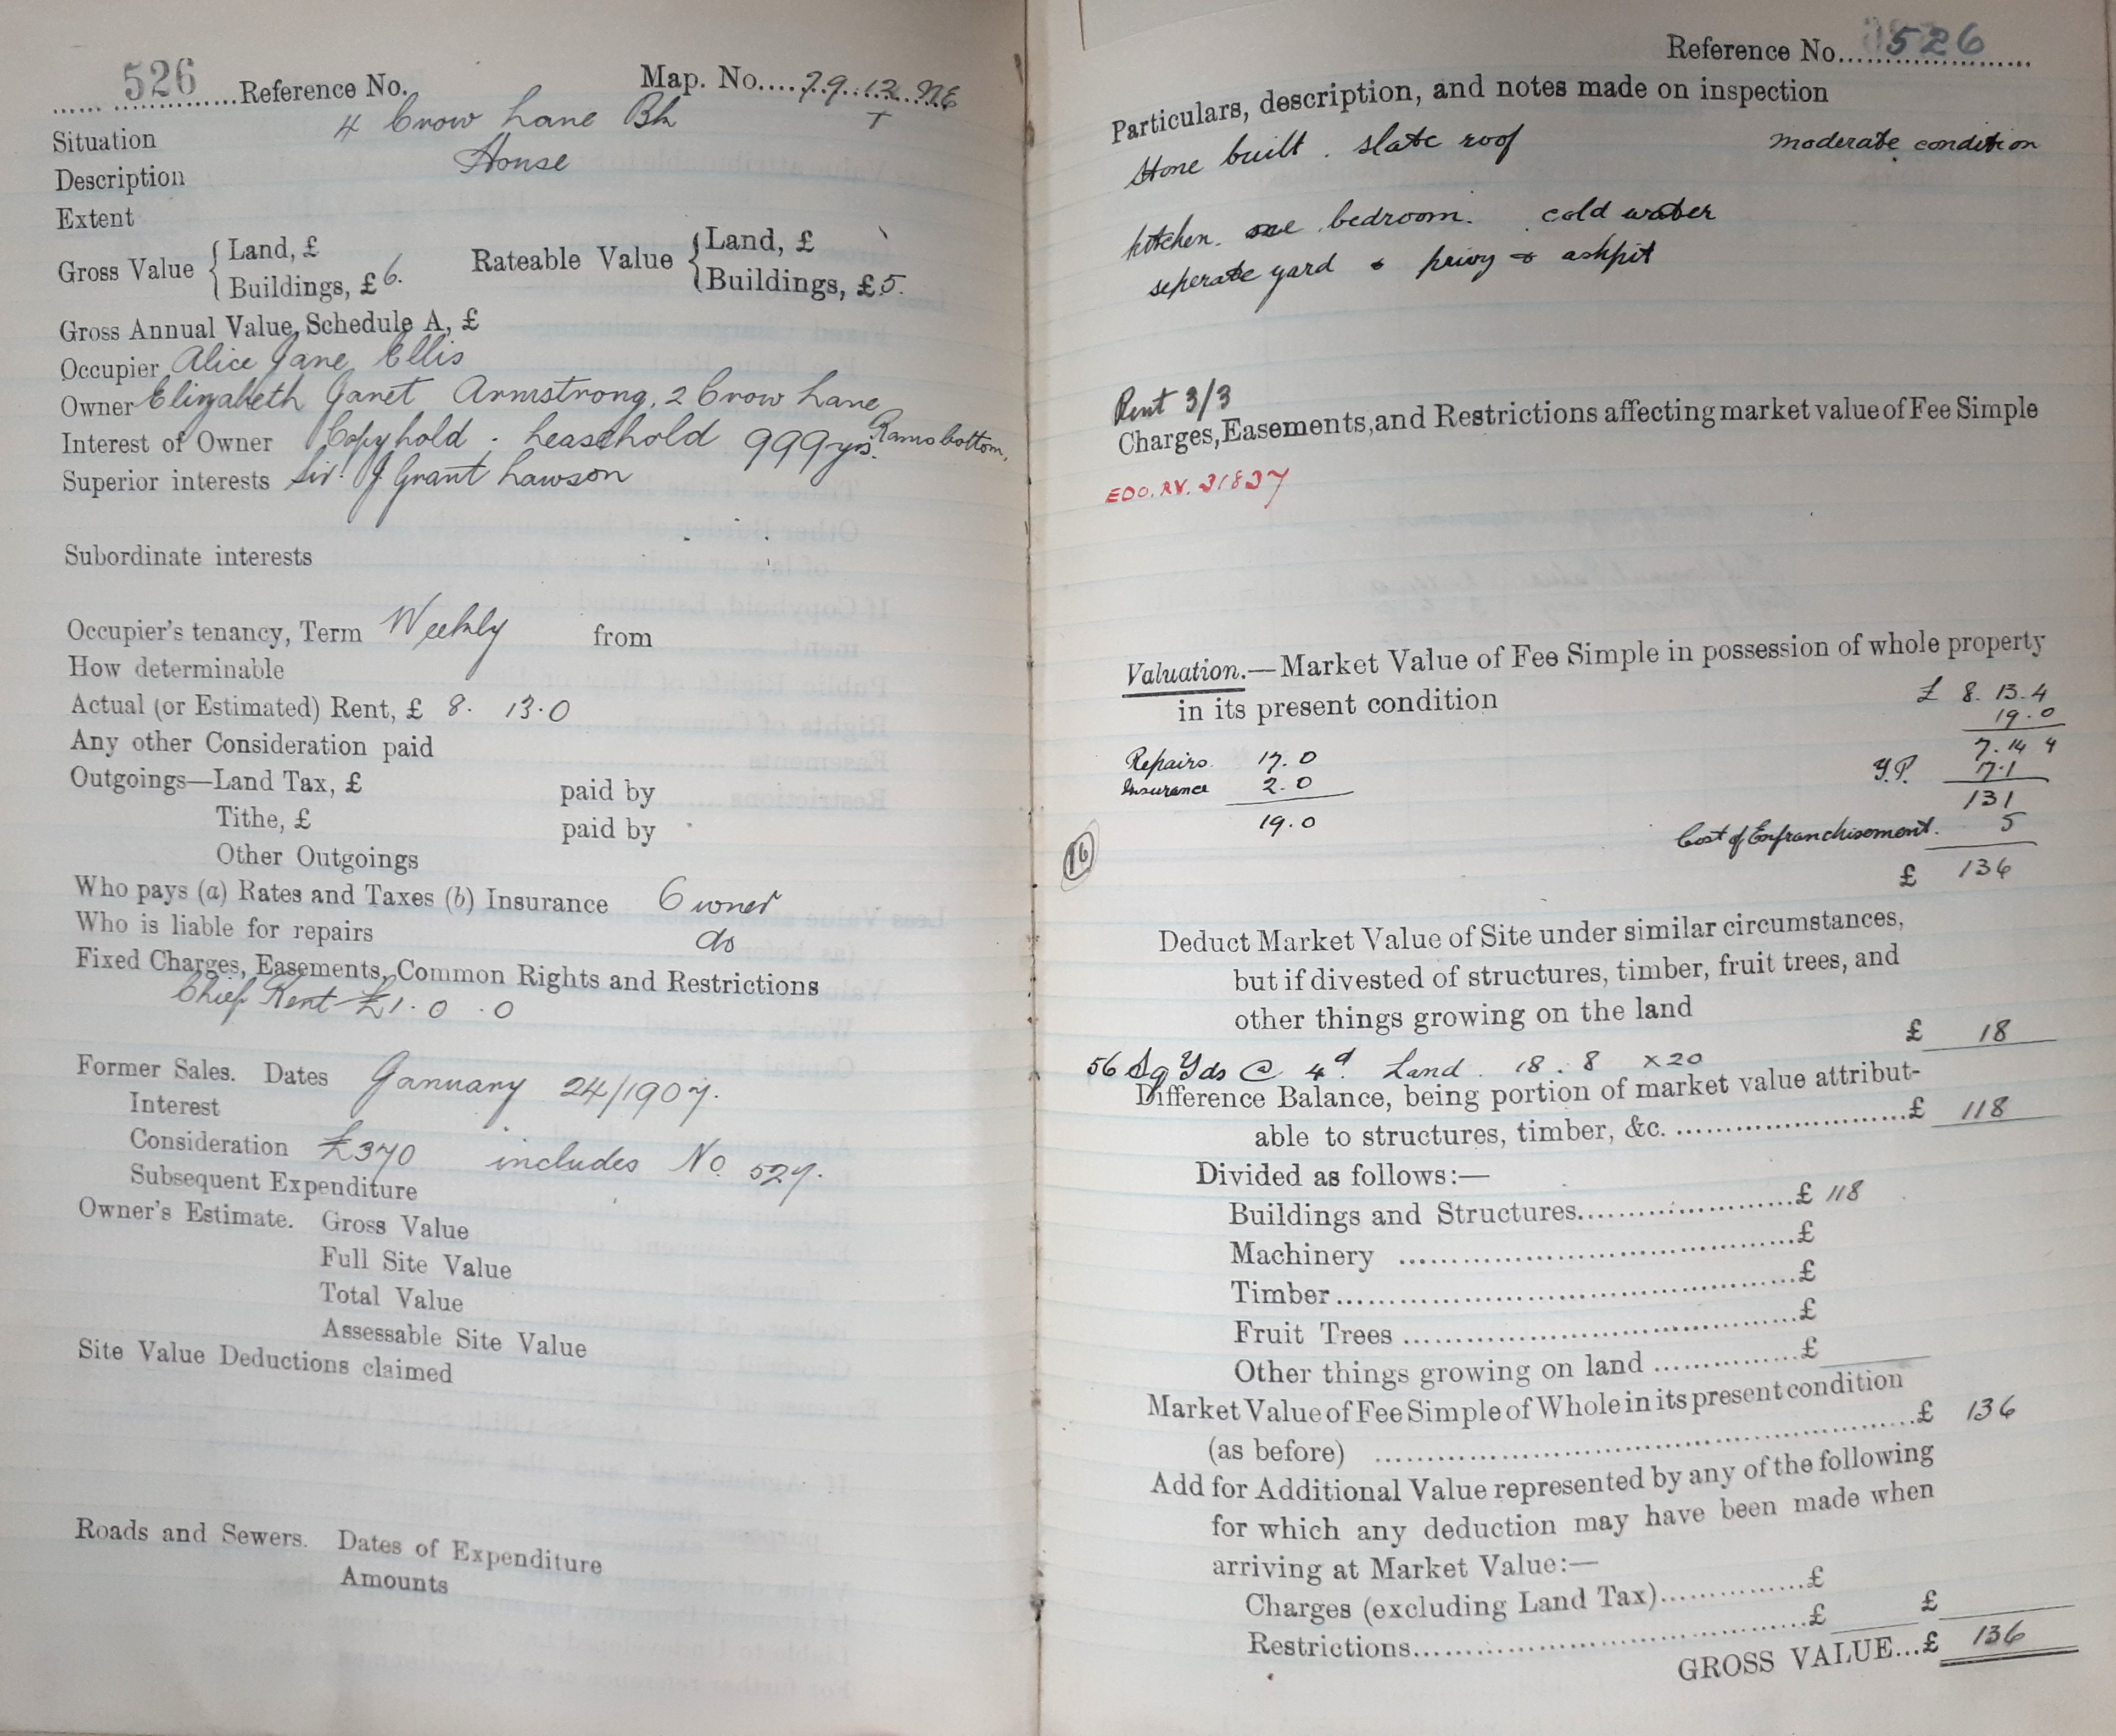 526 Reference No. Map. No. 79.12 NE
T
Situation 4 Crow Lane Bk
Description House
Extent
Gross Value { Land, £ Rateable Value { Land, £
Buildings, £ 6. Buildings, £ 5.
Gross Annual Value, Schedule A, £
Occupier Alice Jane Ellis
Owner Elizabeth Janet Armstrong, 2 Crow Lane
Ramsbottom.
Interest of Owner Copyhold. Leasehold 999 yrs.
Superior interests Sir. J Grant Lawson
Subordinate interests
Occupier's tenancy, Term Weekly from
How determinable
Actual (or Estimated) Rent, £ 8. 13.0
Any other Consideration paid
Outgoings—Land Tax, £ paid by
Tithe, £ paid by
Other Outgoings
Who pays (a) Rates and Taxes (b) Insurance Owner
Who is liable for repairs do
Fixed Charges, Easements, Common Rights and Restrictions
Chief Rent £1.0.0
Former Sales. Dates January 24/1907.
Interest
Consideration £370 includes No. 527.
Subsequent Expenditure
Owner's Estimate. Gross Value
Full Site Value
Total Value
Assessable Site Value
Site Value Deductions claimed
Roads and Sewers. Dates of Expenditure
Amounts
Reference No. 526
Particulars, description, and notes made on inspection
Stone built. slate roof moderate condition
kitchen. one bedroom. cold water
seperate yard & privy & ashpit
Rent 3/3
Charges, Easements, and Restrictions affecting market value of Fee Simple
EDO. RV. 31837
Valuation.—Market Value of Fee Simple in possession of whole property
in its present condition £ 8. 13.4
19.0
7.14 4
Repairs. 17.0 Y.P. 17.1
Insurance 2.0 131
19.0 Cost of Enfranchisement. 5
16
£ 136
Deduct Market Value of Site under similar circumstances,
but if divested of structures, timber, fruit trees, and
other things growing on the land £ 18
56 Sq Yds @ 4d. Land. 18.8 x 20
Difference Balance, being portion of market value attribut-
able to structures, timber, &c. £ 118
Divided as follows:—
Buildings and Structures £ 118
Machinery £
Timber £
Fruit Trees £
Other things growing on land £
Market Value of Fee Simple of Whole in its present condition
(as before) £ 136
Add for Additional Value represented by any of the following
for which any deduction may have been made when
arriving at Market Value:—
Charges (excluding Land Tax) £
Restrictions £ £
GROSS VALUE...£ 136